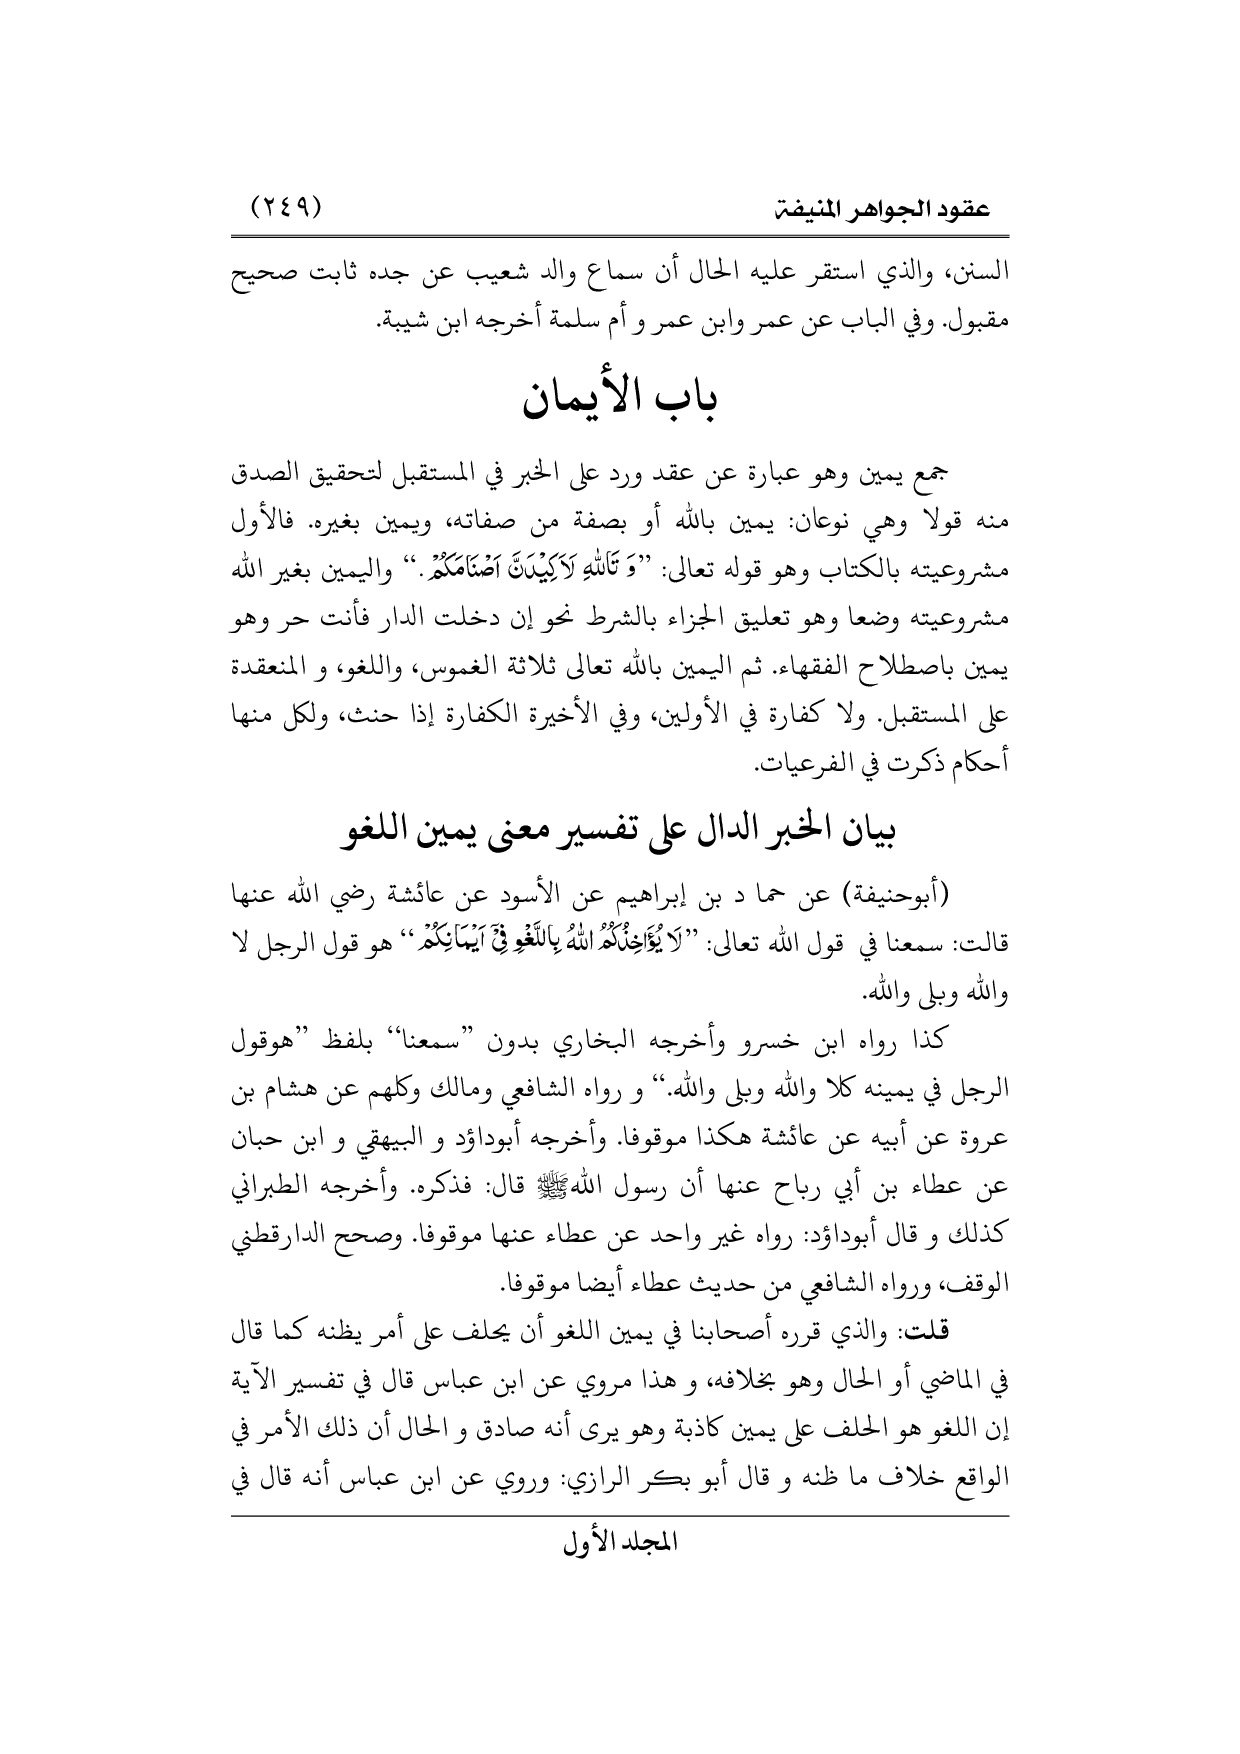 عقود الجواهر المنيفة (٢٤٩)
السنن، والذي استقر عليه الحال أن سماع والد شعيب عن جده ثابت صحيح
مقبول. وفي الباب عن عمر وابن عمر و أم سلمة أخرجه ابن شيبة.
باب الأيمان
جمع يمين وهو عبارة عن عقد ورد على الخبر في المستقبل لتحقيق الصدق
منه قولا وهي نوعان: يمين بالله أو بصفة من صفاته، ويمين بغيره. فالأول
مشروعيته بالكتاب وهو قوله تعالى: ”وَ تَاللّٰهِ لَاَكِيْدَنَّ اَصْنَامَكُمْ.“ واليمين بغير الله
مشروعيته وضعا وهو تعليق الجزاء بالشرط نحو إن دخلت الدار فأنت حر وهو
يمين باصطلاح الفقهاء. ثم اليمين بالله تعالى ثلاثة الغموس، واللغو، و المنعقدة
على المستقبل. ولا كفارة في الأولين، وفي الأخيرة الكفارة إذا حنث، ولكل منها
أحكام ذكرت في الفرعيات.
بيان الخبر الدال على تفسير معنى يمين اللغو
(أبوحنيفة) عن حما د بن إبراهيم عن الأسود عن عائشة رضي الله عنها
قالت: سمعنا في قول الله تعالى: ”لَا يُؤَاخِذُكُمُ اللّٰهُ بِاللَّغْوِ فِيْٓ اَيْمَانِكُمْ“ هو قول الرجل لا
والله وبلى والله.
كذا رواه ابن خسرو وأخرجه البخاري بدون ”سمعنا“ بلفظ ”هوقول
الرجل في يمينه كلا والله وبلى والله.“ و رواه الشافعي ومالك وكلهم عن هشام بن
عروة عن أبيه عن عائشة هكذا موقوفا. وأخرجه أبوداؤد و البيهقي و ابن حبان
عن عطاء بن أبي رباح عنها أن رسول اللهﷺ قال: فذكره. وأخرجه الطبراني
كذلك و قال أبوداؤد: رواه غير واحد عن عطاء عنها موقوفا. وصحح الدارقطني
الوقف، ورواه الشافعي من حديث عطاء أيضا موقوفا.
قلت: والذي قرره أصحابنا في يمين اللغو أن يحلف على أمر يظنه كما قال
في الماضي أو الحال وهو بخلافه، و هذا مروي عن ابن عباس قال في تفسير الآية
إن اللغو هو الحلف على يمين كاذبة وهو يرى أنه صادق و الحال أن ذلك الأمر في
الواقع خلاف ما ظنه و قال أبو بكر الرازي: وروي عن ابن عباس أنه قال في
المجلد الأول